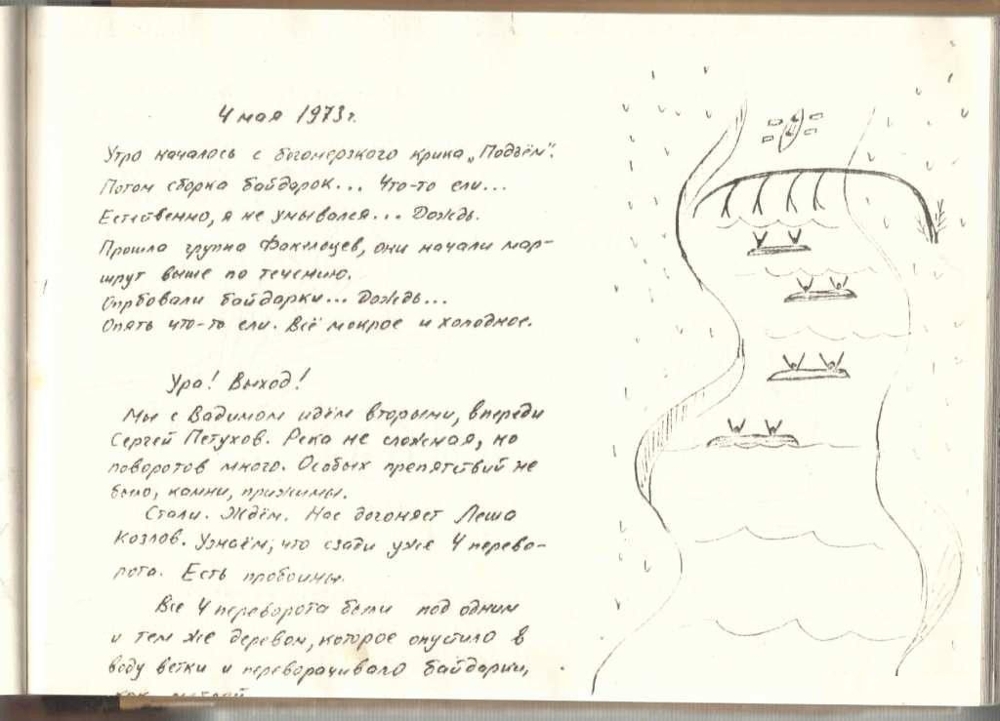 4 мая 1973г.
Утро началось с богомерзкого крика „Подъём".
Потом сборка байдарок... Что-то ели...
Естественно, я не умывался... Дождь.
Прошла группа Факельцев, они начали мар-
шрут выше по течению.
Опробовали байдарки... Дождь...
Опять что-то ели. Всё мокрое и холодное.
Ура! Выход!
Мы с Вадимом идём вторыми, впереди
Сергей Петухов. Река не сложная, но
поворотов много. Особых препятствий не
было, камни, прижимы.
Стали. Ждём. Нас догоняет Леша
Козлов. Узнаём, что сзади уже 4 перево-
рота. Есть пробоины.
Все 4 переворота были под одним
и тем же деревом, которое опустило в
воду ветки и переворачивало байдарки,